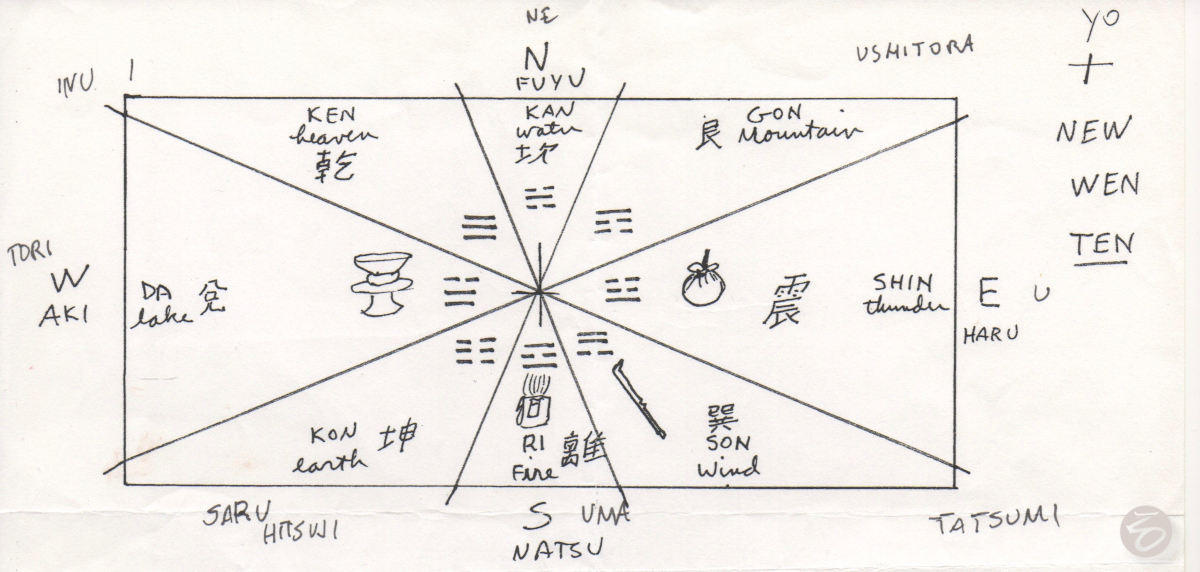 NE
N
FUYU
USHITORA
YO
+
NEW
WEN
TEN
INU I
KEN
heaven
乾
KAN
water
坎
艮
GON
Mountain
TORI
W
AKI
DA
lake
兌
震
SHIN
thunder
E
U
HARU
KON
earth
坤
RI
Fire
離
巽
SON
Wind
SARU
HITSUJI
S
UMA
NATSU
TATSUMI